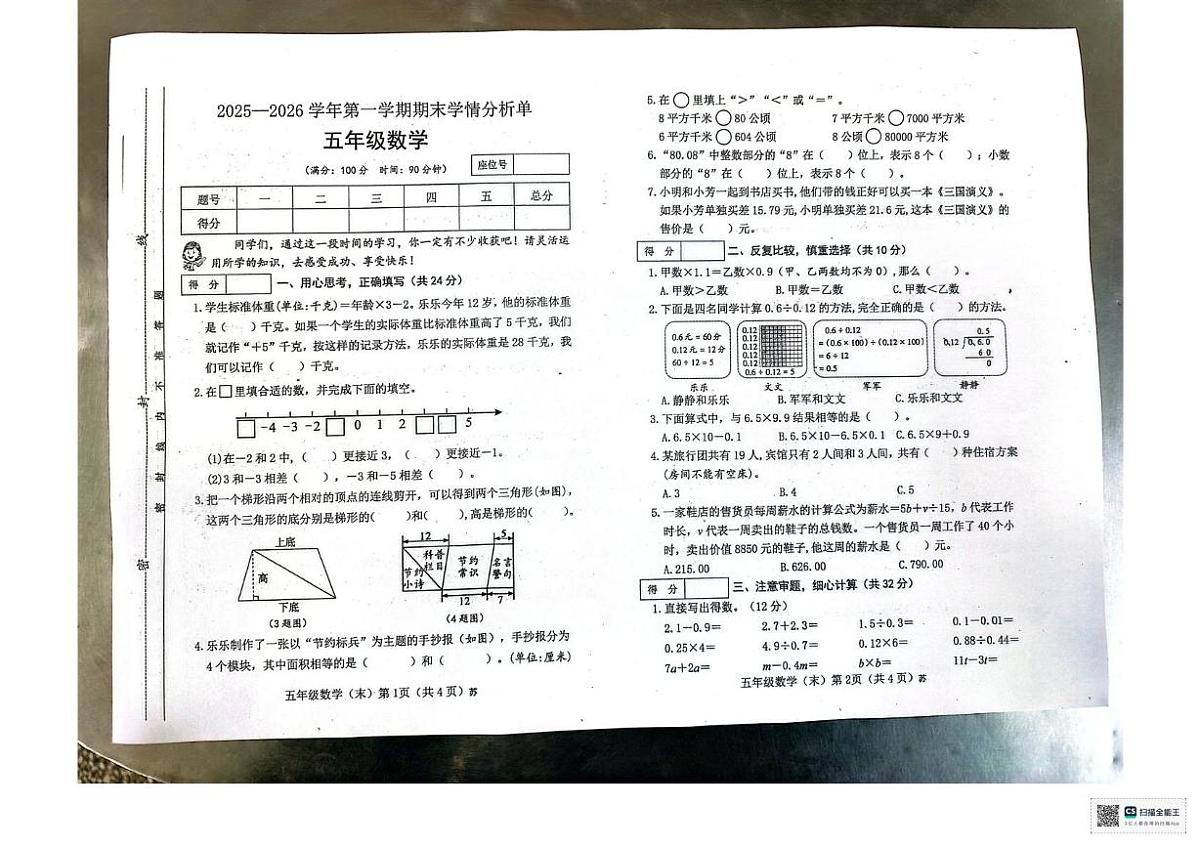 2025—2026学年第一学期期末学情分析单
五年级数学
(满分：100分 时间：90分钟)
座位号
题号 一 二 三 四 五 总分
得分
同学们，通过这一段时间的学习，你一定有不少收获吧！请灵活运
用所学的知识，去感受成功、享受快乐！
得 分
一、用心思考，正确填写（共24分）
1.学生标准体重(单位:千克)=年龄×3-2。乐乐今年12岁，他的标准体重
是( )千克。如果一个学生的实际体重比标准体重高了5千克，我们
就记作“+5”千克，按这样的记录方法，乐乐的实际体重是28千克，我
们可以记作( )千克。
2.在□里填合适的数，并完成下面的填空。
□ -4 -3 -2 □ 0 1 2 □ □ 5
(1)在-2和2中，( )更接近3，( )更接近-1。
(2)3和-3相差( )，-3和-5相差( )。
3.把一个梯形沿两个相对的顶点的连线剪开，可以得到两个三角形(如图)，
这两个三角形的底分别是梯形的( )和( ),高是梯形的( )。
上底
高
下底
(3题图)
12
5
科普
栏目
节约
小诗
节约
常识
名言
警句
12
7
(4题图)
4.乐乐制作了一张以“节约标兵”为主题的手抄报（如图），手抄报分为
4个模块，其中面积相等的是( )和( )。(单位:厘米)
五年级数学（末）第1页（共4页）苏
线
封
密
密 封 线 内 不 准 答 题
5.在○里填上“>”“<”或“=”。
8平方千米○80公顷 7平方千米○7000平方米
6平方千米○604公顷 8公顷○80000平方米
6.“80.08”中整数部分的“8”在( )位上，表示8个( )；小数
部分的“8”在( )位上，表示8个( )。
7.小明和小芳一起到书店买书,他们带的钱正好可以买一本《三国演义》。
如果小芳单独买差15.79元,小明单独买差21.6元,这本《三国演义》的
售价是( )元。
得 分
二、反复比较，慎重选择（共10分）
1.甲数×1.1=乙数×0.9（甲、乙两数均不为0）,那么( )。
A.甲数>乙数 B.甲数=乙数 C.甲数<乙数
2.下面是四名同学计算0.6÷0.12的方法,完全正确的是( )的方法。
0.6元=60分
0.12元=12分
60÷12=5
乐乐
0.12
0.12
0.12
0.12
0.12
0.6÷0.12=5
文文
0.6÷0.12
=(0.6×100)÷(0.12×100)
=6÷12
=0.5
军军
0.5
0.12 0.6 0
6 0
0
静静
A.静静和乐乐 B.军军和文文 C.乐乐和文文
3.下面算式中，与6.5×9.9结果相等的是( )。
A.6.5×10-0.1 B.6.5×10-6.5×0.1 C.6.5×9+0.9
4.某旅行团共有19人,宾馆只有2人间和3人间，共有( )种住宿方案
(房间不能有空床)。
A.3 B.4 C.5
5.一家鞋店的售货员每周薪水的计算公式为薪水=5b+v÷15，b代表工作
时长，v代表一周卖出的鞋子的总钱数。一个售货员一周工作了40个小
时，卖出价值8850元的鞋子,他这周的薪水是( )元。
A.215.00 B.626.00 C.790.00
得 分
三、注意审题，细心计算（共32分）
1.直接写出得数。(12分)
2.1-0.9= 2.7+2.3= 1.5÷0.3= 0.1-0.01=
0.25×4= 4.9÷0.7= 0.12×6= 0.88÷0.44=
7a+2a= m-0.4m= b×b= 11t-3t=
五年级数学（末）第2页（共4页）苏
CS 扫描全能王